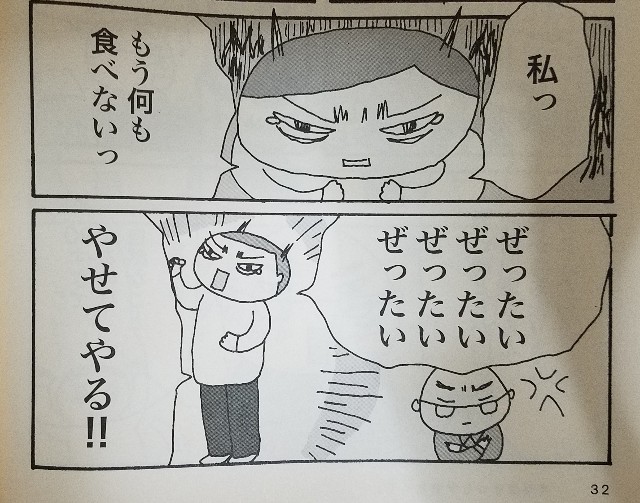 私っ
もう何も
食べないっ
ぜったい
ぜったい
ぜったい
ぜったい
やせてやる!!
32